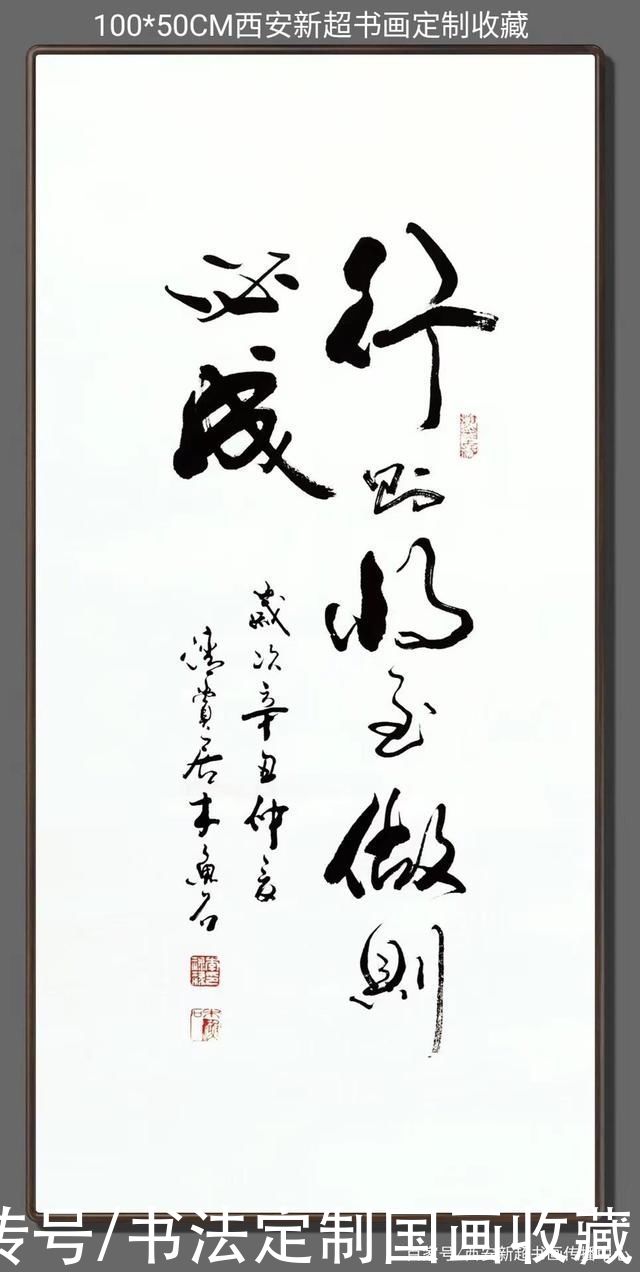 100*50CM西安新超书画定制收藏
行则将至做則
必成
歲次辛丑仲夏
清賞居木魚石
号/书法定制国画收藏
百家号/西安新超书画传播中心